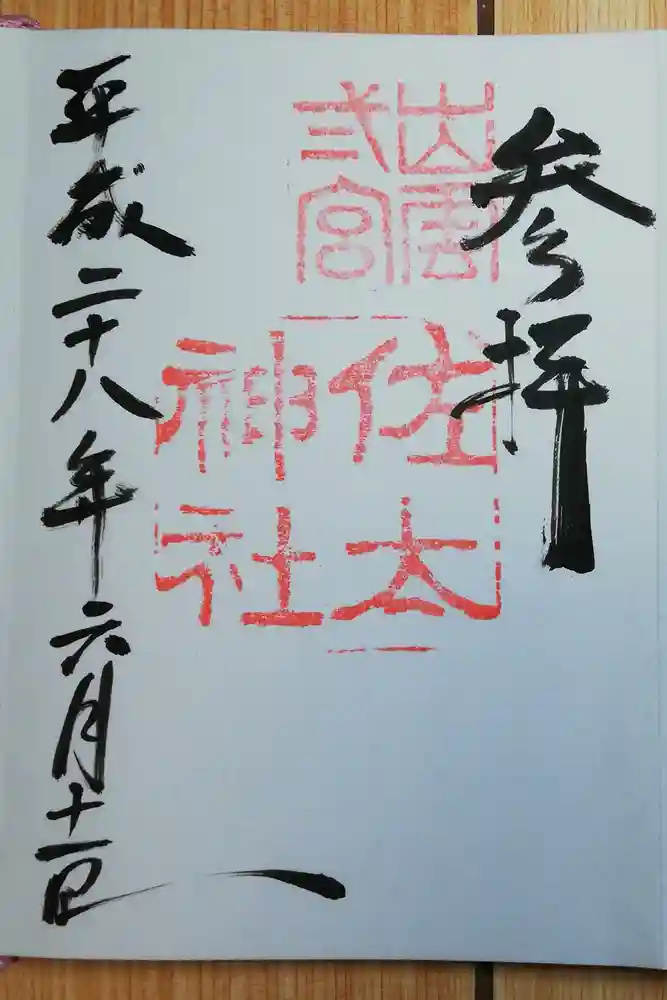 参拝
出雲
弍宮
佐太
神社
平成二十八年六月十一日